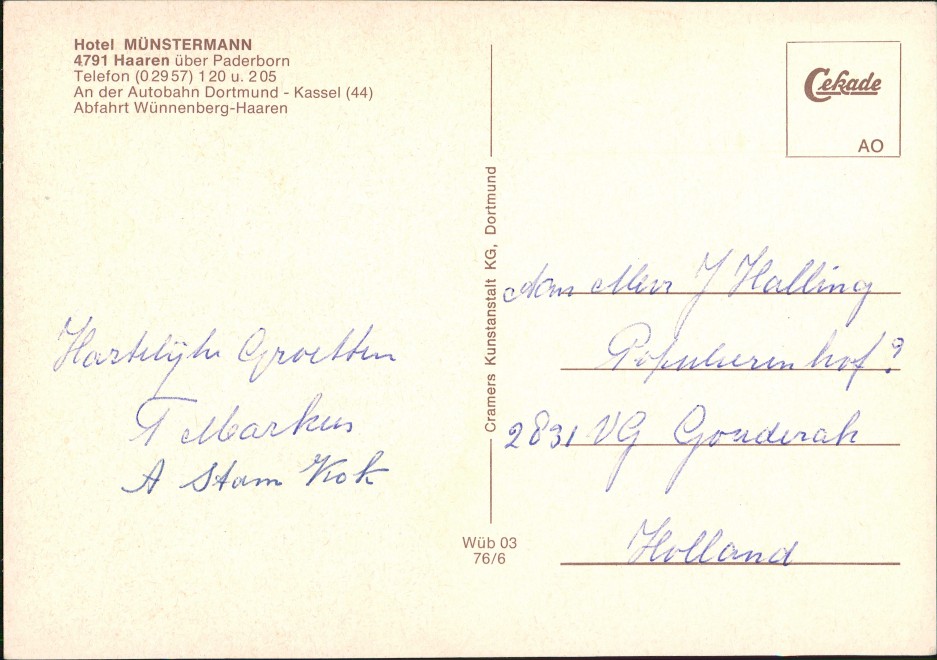 Hotel MÜNSTERMANN
4791 Haaren über Paderborn
Telefon (02957) 120 u. 205
An der Autobahn Dortmund - Kassel (44)
Abfahrt Wünnenberg-Haaren
Hartelijke Groetten
T Markus
A Stam Kok
Cramers Kunstanstalt KG, Dortmund
Wüb 03
76/6
Cekade
AO
Aan Mevr J Halling
Populierenhof 9
2831 VG Gouderak
Holland